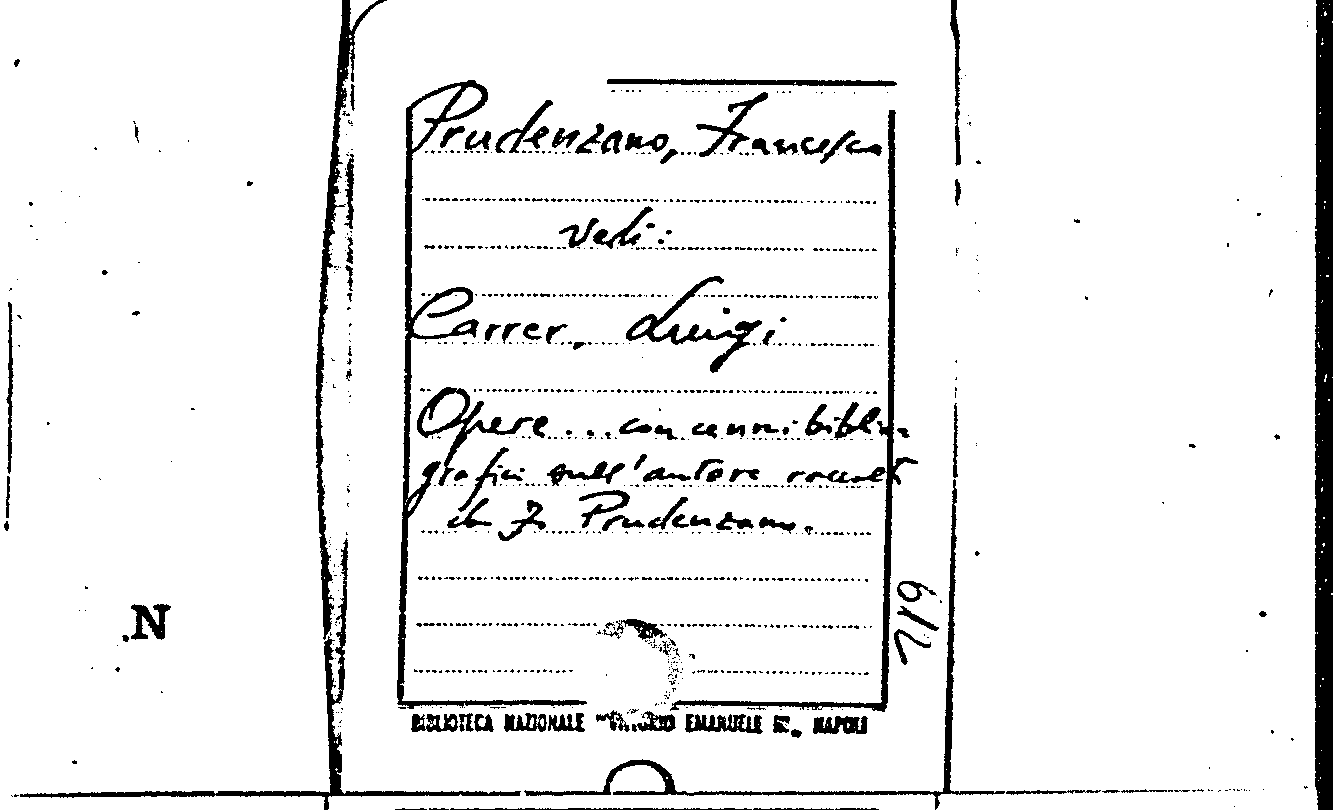 Prudenzano, Francesco
vedi:
Carrer, Luigi
Opere ... con cenni biblio-
grafici sull'autore raccolti
da F. Prudenzano.
719
N
BIBLIOTECA NAZIONALE "VITTORIO EMANUELE III", NAPOLI